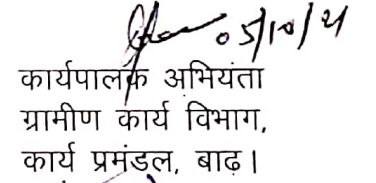 05/10/21
कार्यपालक अभियंता
ग्रामीण कार्य विभाग,
कार्य प्रमंडल, बाढ़।